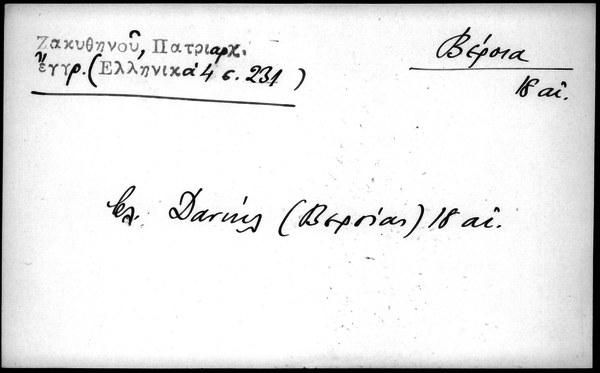 Ζακυθηνοῦ, Πατριαρχ.
ἔγγρ. (Ἑλληνικά 4 σ. 231)
Βέροια
18 αἰ.
βλ. Δανιήλ (Βεροίας) 18 αἰ.